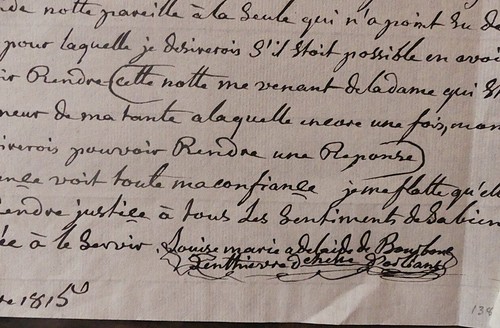 notte pareille à la seule qui n'a point eu de
pour laquelle je desirerois s'il étoit possible en avoi
ir Rendre (cette notte me venant de la dame qui est
neur de ma tante a laquelle encore une fois, mon
irerois pouvoir Rendre une Reponse)
voit toute ma confiance je me flatte qu'el
endre justice à tous les sentiments de sa bien
ée à le servir. Louise marie adelaide de Bourbon
Penthievre d'orleans
re 1815
138